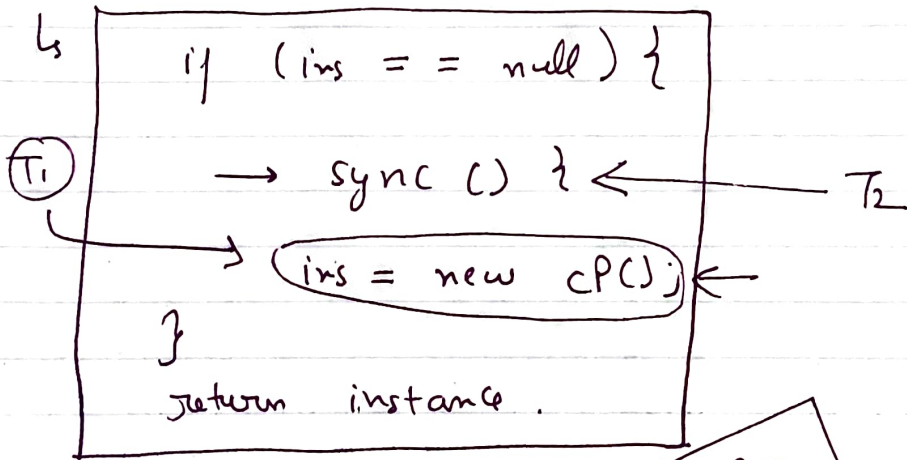 ↳
if (ins == null) {
T1 → sync () { ← T2
ins = new CP();
}
return instance.